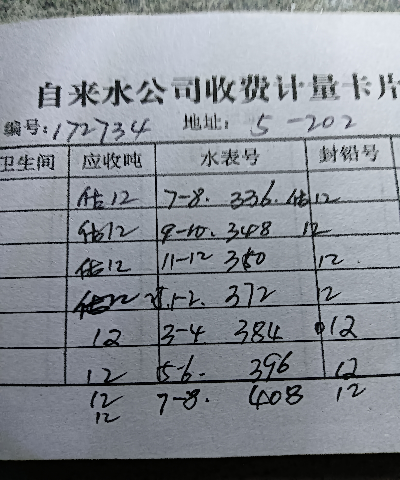 自来水公司收费计量卡片
编号:172734 地址: 5-202
卫生间 应收吨 水表号 封铅号
估12 7-8. 336. 估12
估12 9-10. 348 12
估12 11-12 360 12.
1-2. 372 12
12 3-4 384 12
12 5-6. 396 12
12 7-8. 408 12
12